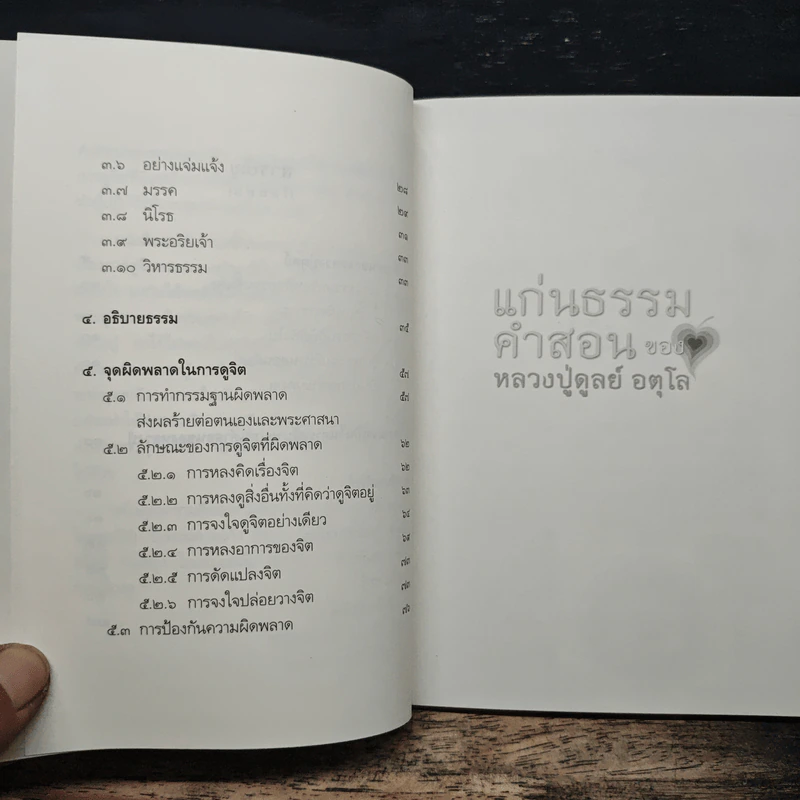 ๓.๖ อย่างแจ่มแจ้ง ๒๘
๓.๗ มรรค ๒๙
๓.๘ นิโรธ ๓๑
๓.๙ พระอริยเจ้า ๓๓
๓.๑๐ วิหารธรรม ๓๓
๔. อธิบายธรรม ๓๕
๕. จุดผิดพลาดในการดูจิต ๕๗
๕.๑ การทำกรรมฐานผิดพลาด ๕๗
ส่งผลร้ายต่อตนเองและพระศาสนา
๕.๒ ลักษณะของการดูจิตที่ผิดพลาด ๖๒
๕.๒.๑ การหลงคิดเรื่องจิต ๖๒
๕.๒.๒ การหลงดูสิ่งอื่นทั้งที่คิดว่าดูจิตอยู่ ๖๓
๕.๒.๓ การจงใจดูจิตอย่างเดียว ๖๔
๕.๒.๔ การหลงอาการของจิต ๖๙
๕.๒.๕ การดัดแปลงจิต ๗๓
๕.๒.๖ การจงใจปล่อยวางจิต ๗๓
๕.๓ การป้องกันความผิดพลาด ๗๖
แก่นธรรม
คำสอน ของ
หลวงปู่ดูลย์ อตุโล